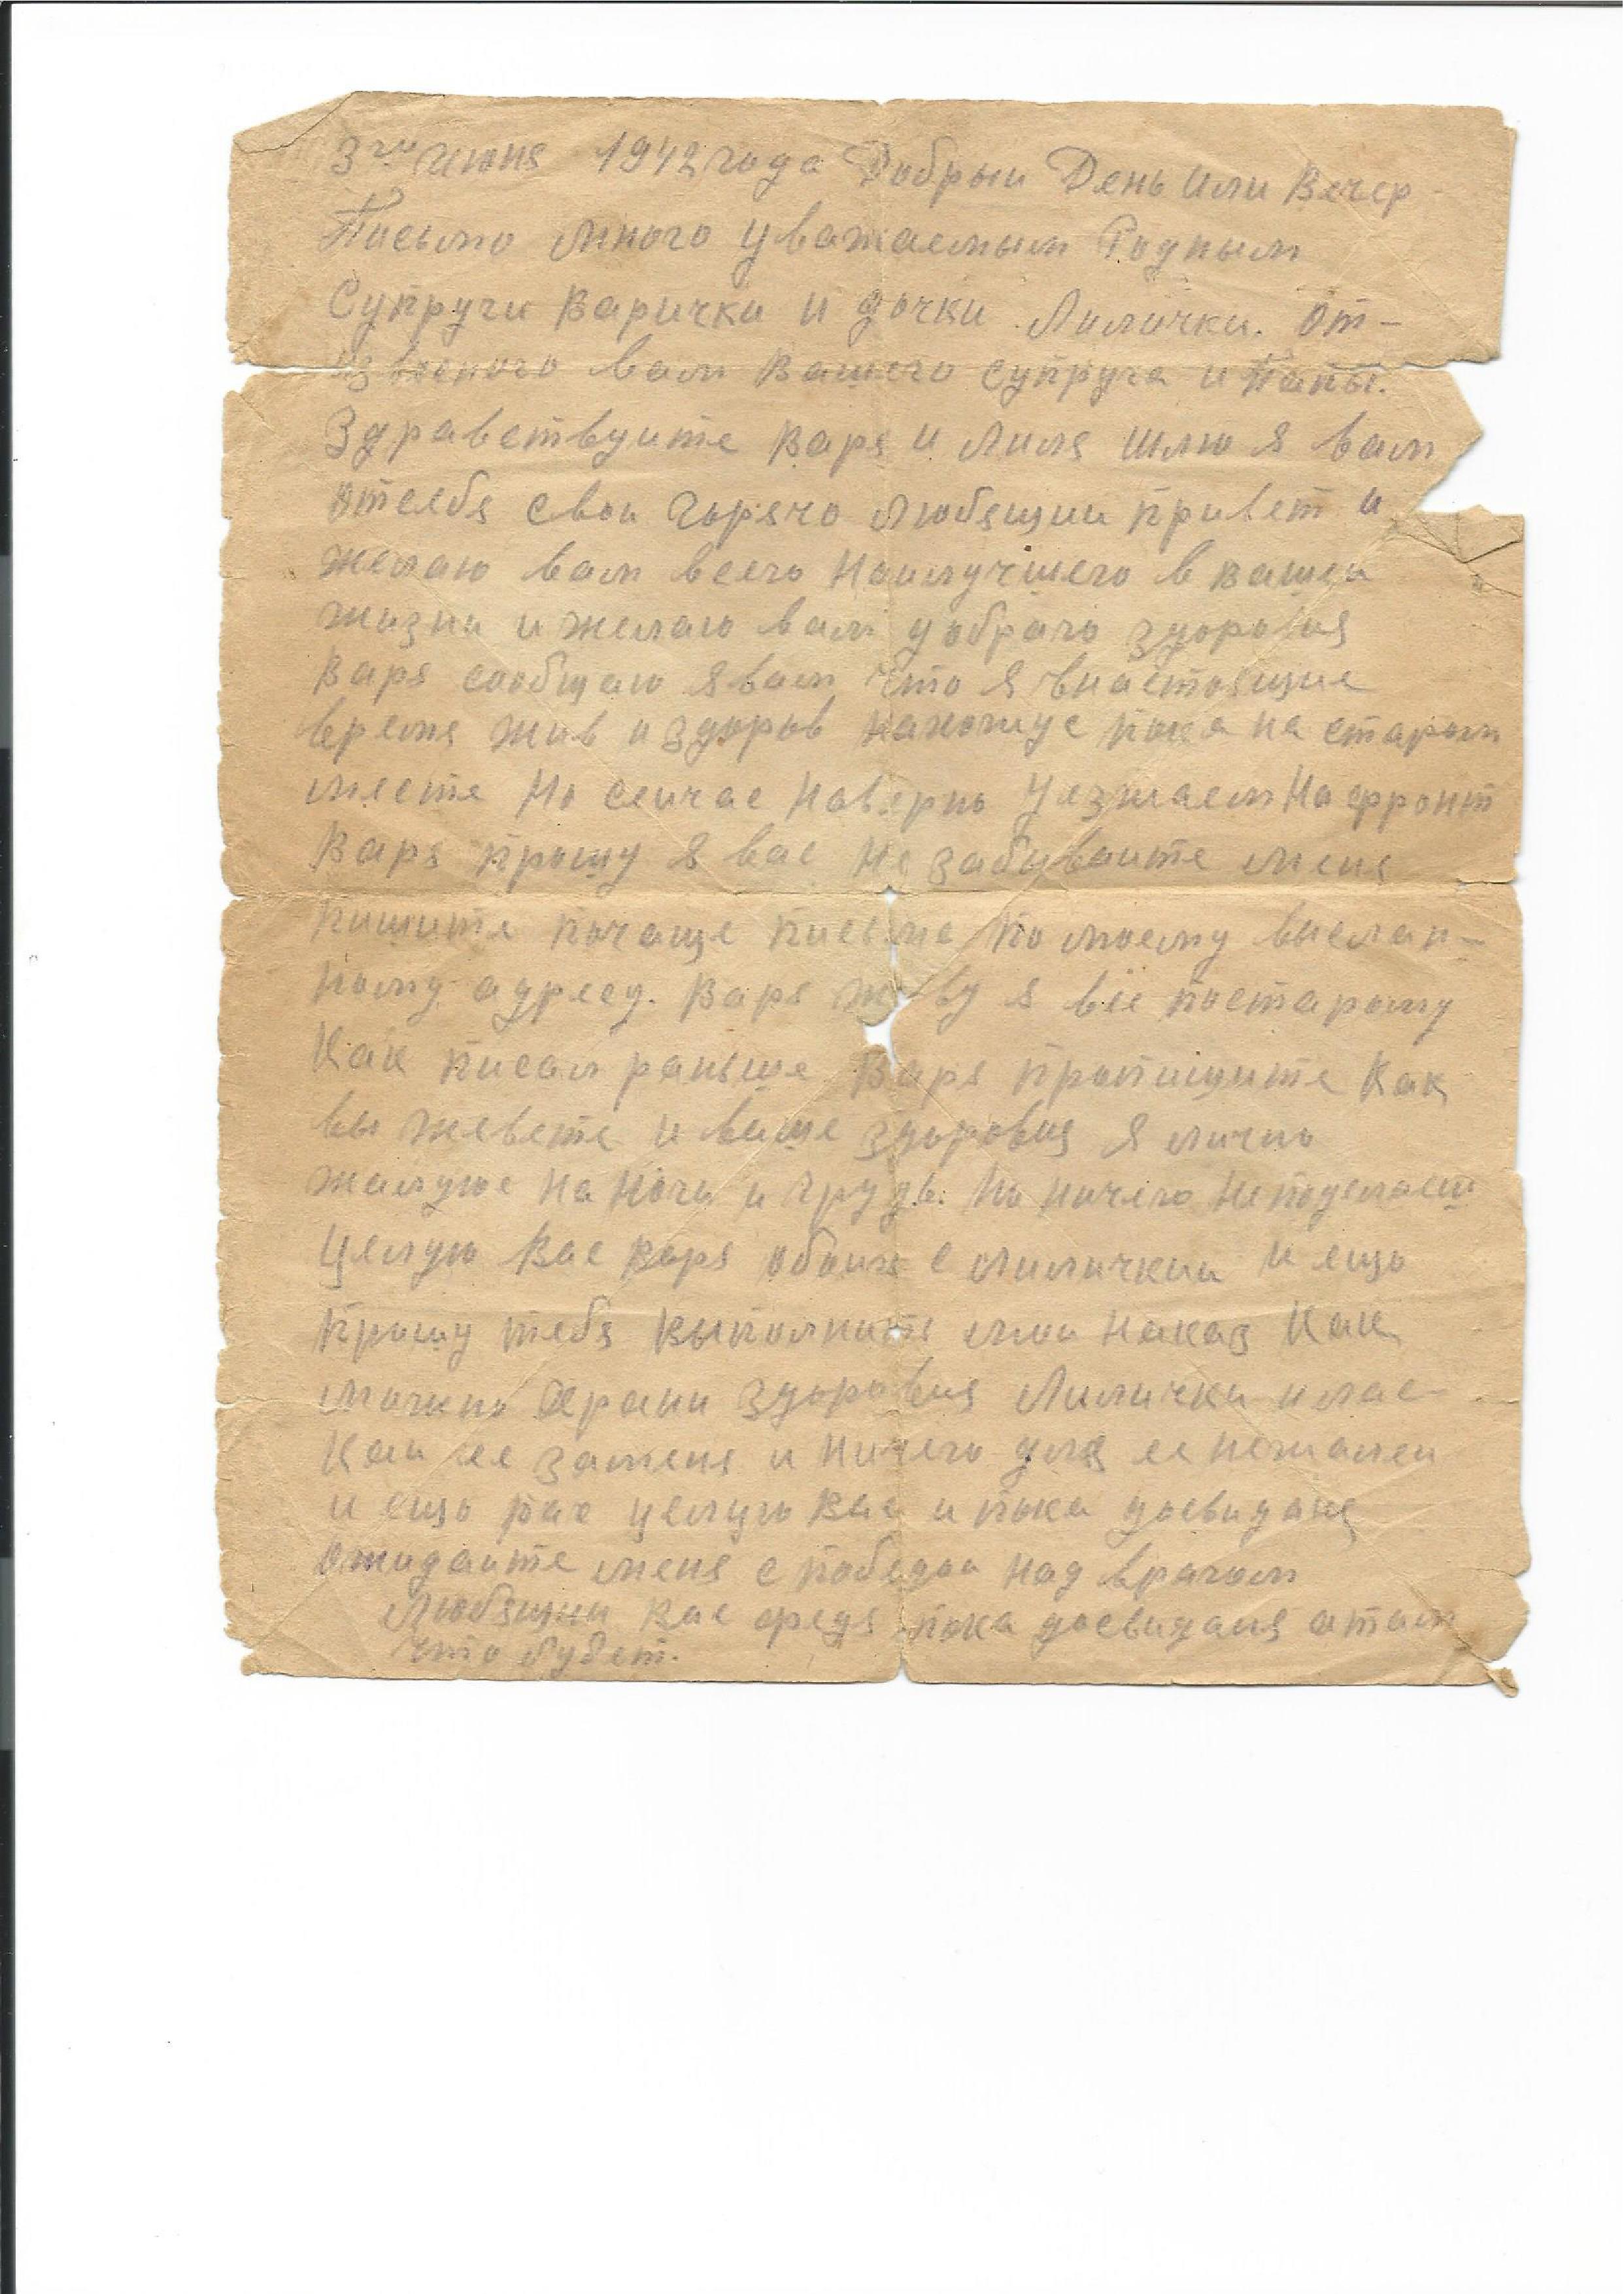 3го Июня 1942 года Добрыи День или Вечер
Писымо много уважаемым Родным
Супруги Варички и дочки Лилички. От-
извесного вам Вашего супруга и Папы.
Здравствуите Варя и Лиля шлю я вам
отсебя свои Горячо любящии привет и
желаю вам всего Наилучшего в вашеи
жизни и желаю вам доброго здоровия
Варя сообщаю я вам что я внастоящие
время жив и здоров нахожус пока на старом
месте Но сеичас Наверно Уезжаем На фронт
Варя прошу я вас Не забываите меня
пишите почаще писма по моему выслан-
ному адресу. Варя живу я все постарому
Как писал раньше Варя пропишите Как
вы живете и ваше здоровия я лично
жалуюс На Ноги и грудь. Но ничего Неподелаеш
Целую Вас Варя обоих с Лиличкаи и ещо
Прошу тебя выполнить мои наказ Как
можно храни здоровия Лилички и лас-
каи ее заменя и Ничего для ее нежалеи
и ещо раз целую Вас и пока досвидания
Ожидаите меня с победои над врагом
Любящии Вас Федя пока досвидания атам
что будет.